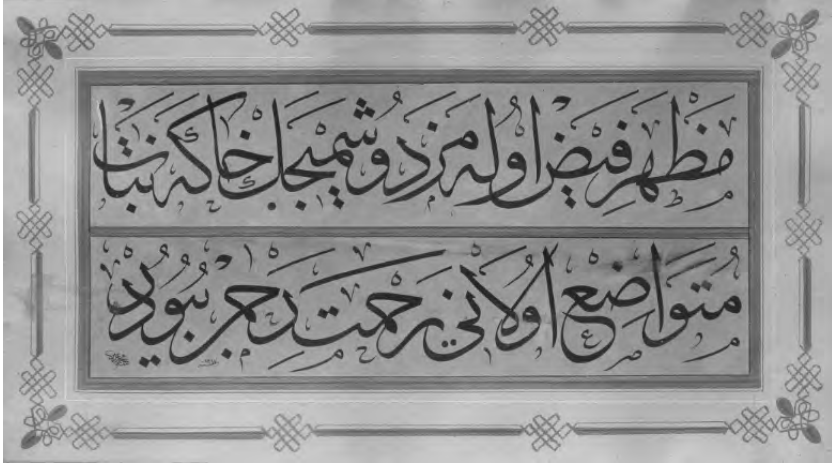 مظهر فیض اوله مز دوشمیجك خاكه نبات
متواضع اولانی رحمت رحمن بیودر